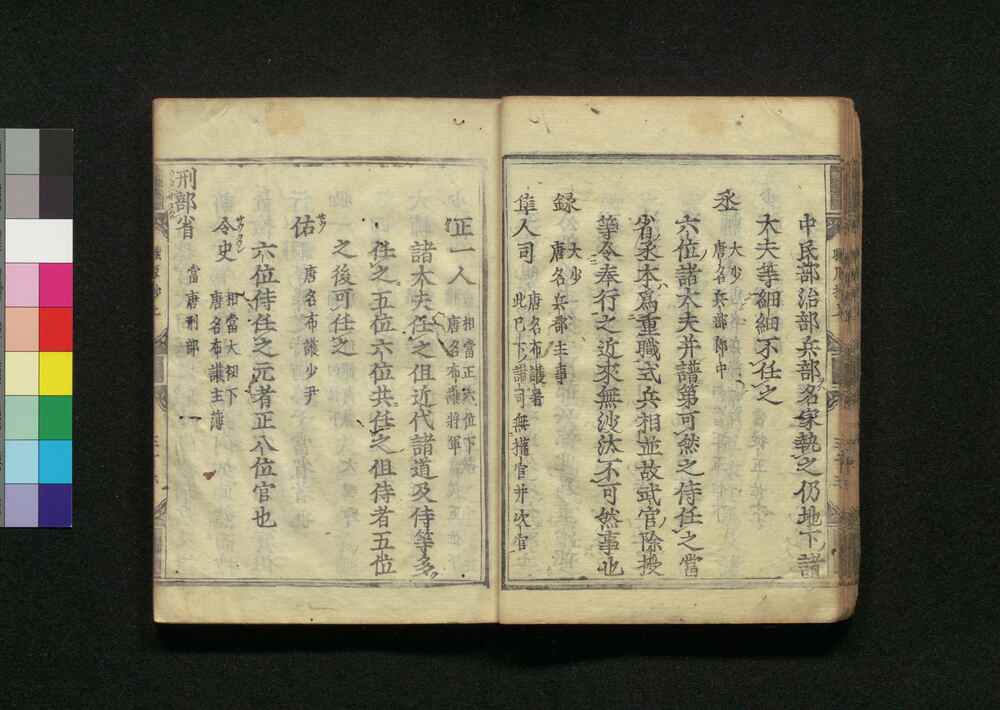 中民部治部兵部名家執之仍地下諸
大夫等細細不任之
丞 大少 唐名兵部郎中
六位諸大夫并譜第可然之侍任之當
省丞本爲重職式兵相並故武官除授
等令奉行之近來無沙汰不可然事也
録 大少 唐名兵部主事
隼人司 唐名布護署 此已下ノ諸司無權官并次官
正一人 相當正六位下 唐名布護將軍
諸大夫任之但近代諸道及侍等多
任之五位六位共任之但侍者五位
之後可任之
佑 唐名布護少尹
六位侍任之元者正八位官也
令史 相當大初下 唐名布護主簿
刑部省 當唐刑部